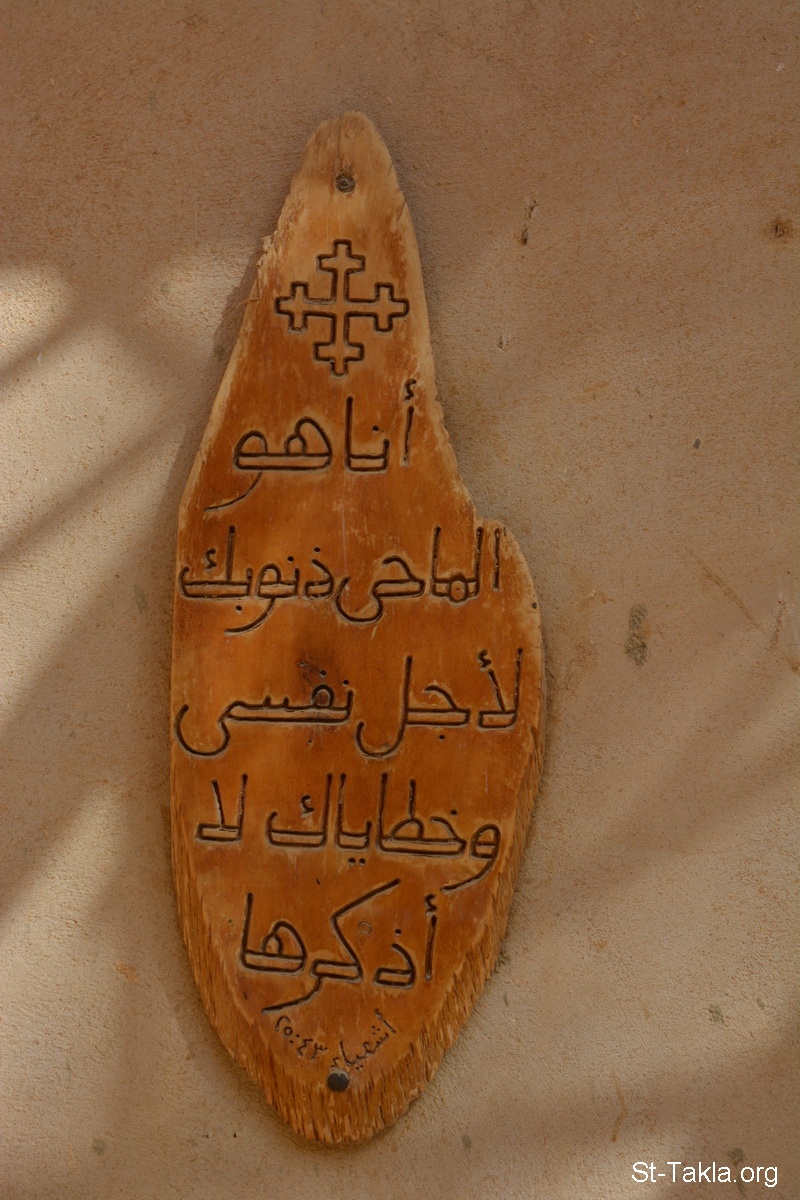 أنا هو
الماحى ذنوبك
لأجل نفسى
وخطاياك لا
أذكرها
أشعياء ٤٣:٢٥
St-Takla.org